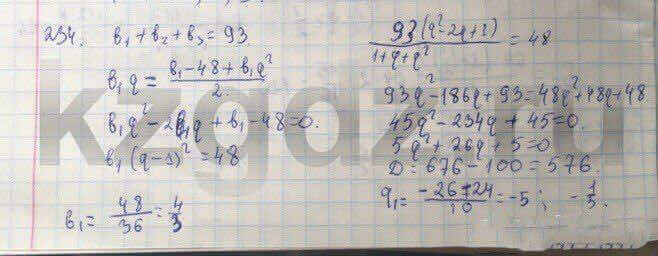 234. b₁ + b₂ + b₃ = 93.
b₁q = (b₁ - 48 + b₁q²)/2.
b₁q² - 2b₁q + b₁ - 48 = 0.
b₁(q - 1)² = 48
b₁ = 48/36 = 4/3
93(q² - 2q + 1)/(1 + q + q²) = 48
93q² - 186q + 93 = 48q² + 48q + 48
45q² - 234q + 45 = 0.
5q² + 26q + 5 = 0
D = 676 - 100 = 576.
q₁ = (-26 + 24)/10 = -5; -1/5.
kzgdz.ru